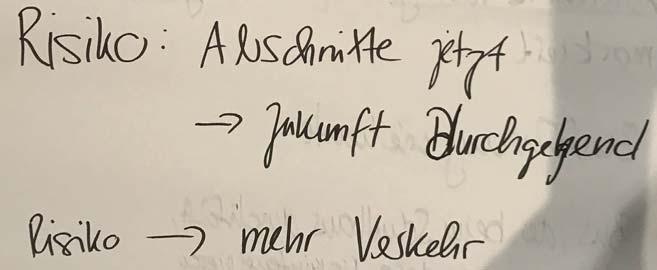 Risiko: Abschnitte jetzt
→ Zukunft Durchgehend
Risiko → mehr Verkehr